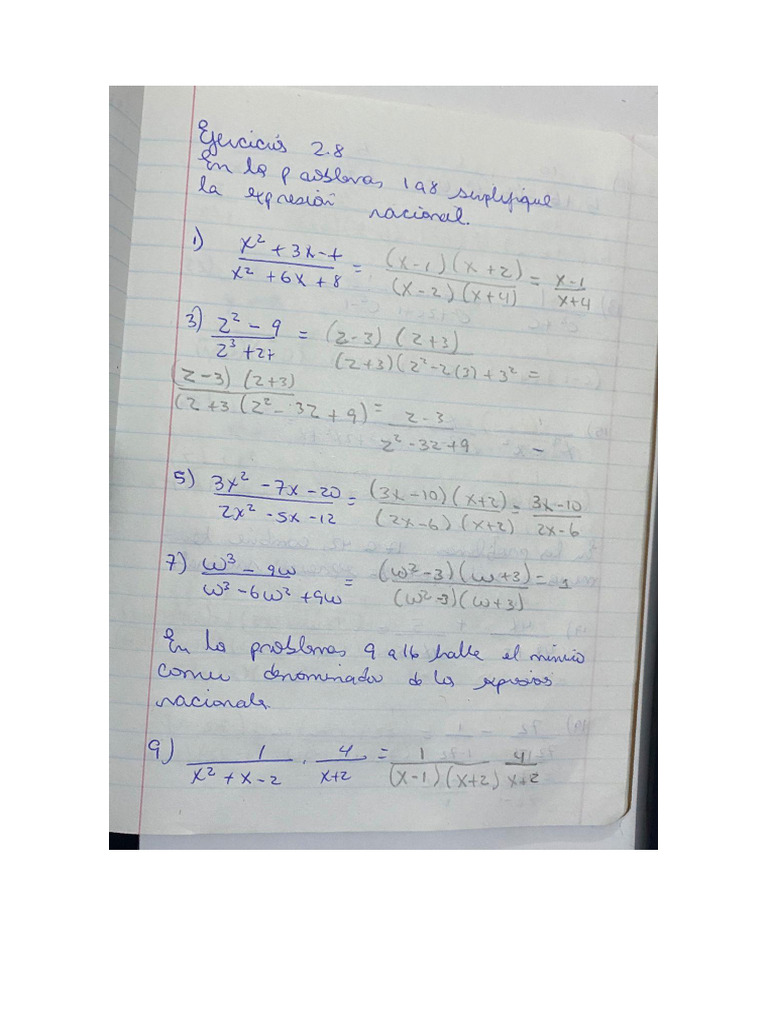 Ejercicios 2.8
En los problemas 1 a 8 simplifique
la expresión racional.
1) x² + 3x - + / x² + 6x + 8 = (x-1)(x+2) / (x-2)(x+4) = x-1 / x+4
3) z² - 9 / z³ + 27 = (z-3)(z+3) / (z+3)(z²-z(3)+3² =
(z-3)(z+3) / (z+3(z²-3z+9) = z-3 / z²-3z+9
5) 3x² - 7x - 20 / 2x² - 5x - 12 = (3x-10)(x+2) / (2x-6)(x+2) = 3x-10 / 2x-6
7) ω³ - 9ω / ω³ - 6ω² + 9ω = (ω²-3)(ω+3) / (ω²-3)(ω+3) = 1
En lo problemas 9 a 16 halle el minimo
comun denominador de los
racionals.
9) 1 / x² + x - 2 , 4 / x+2 , = 1 / (x-1)(x+2) 4 / x+2